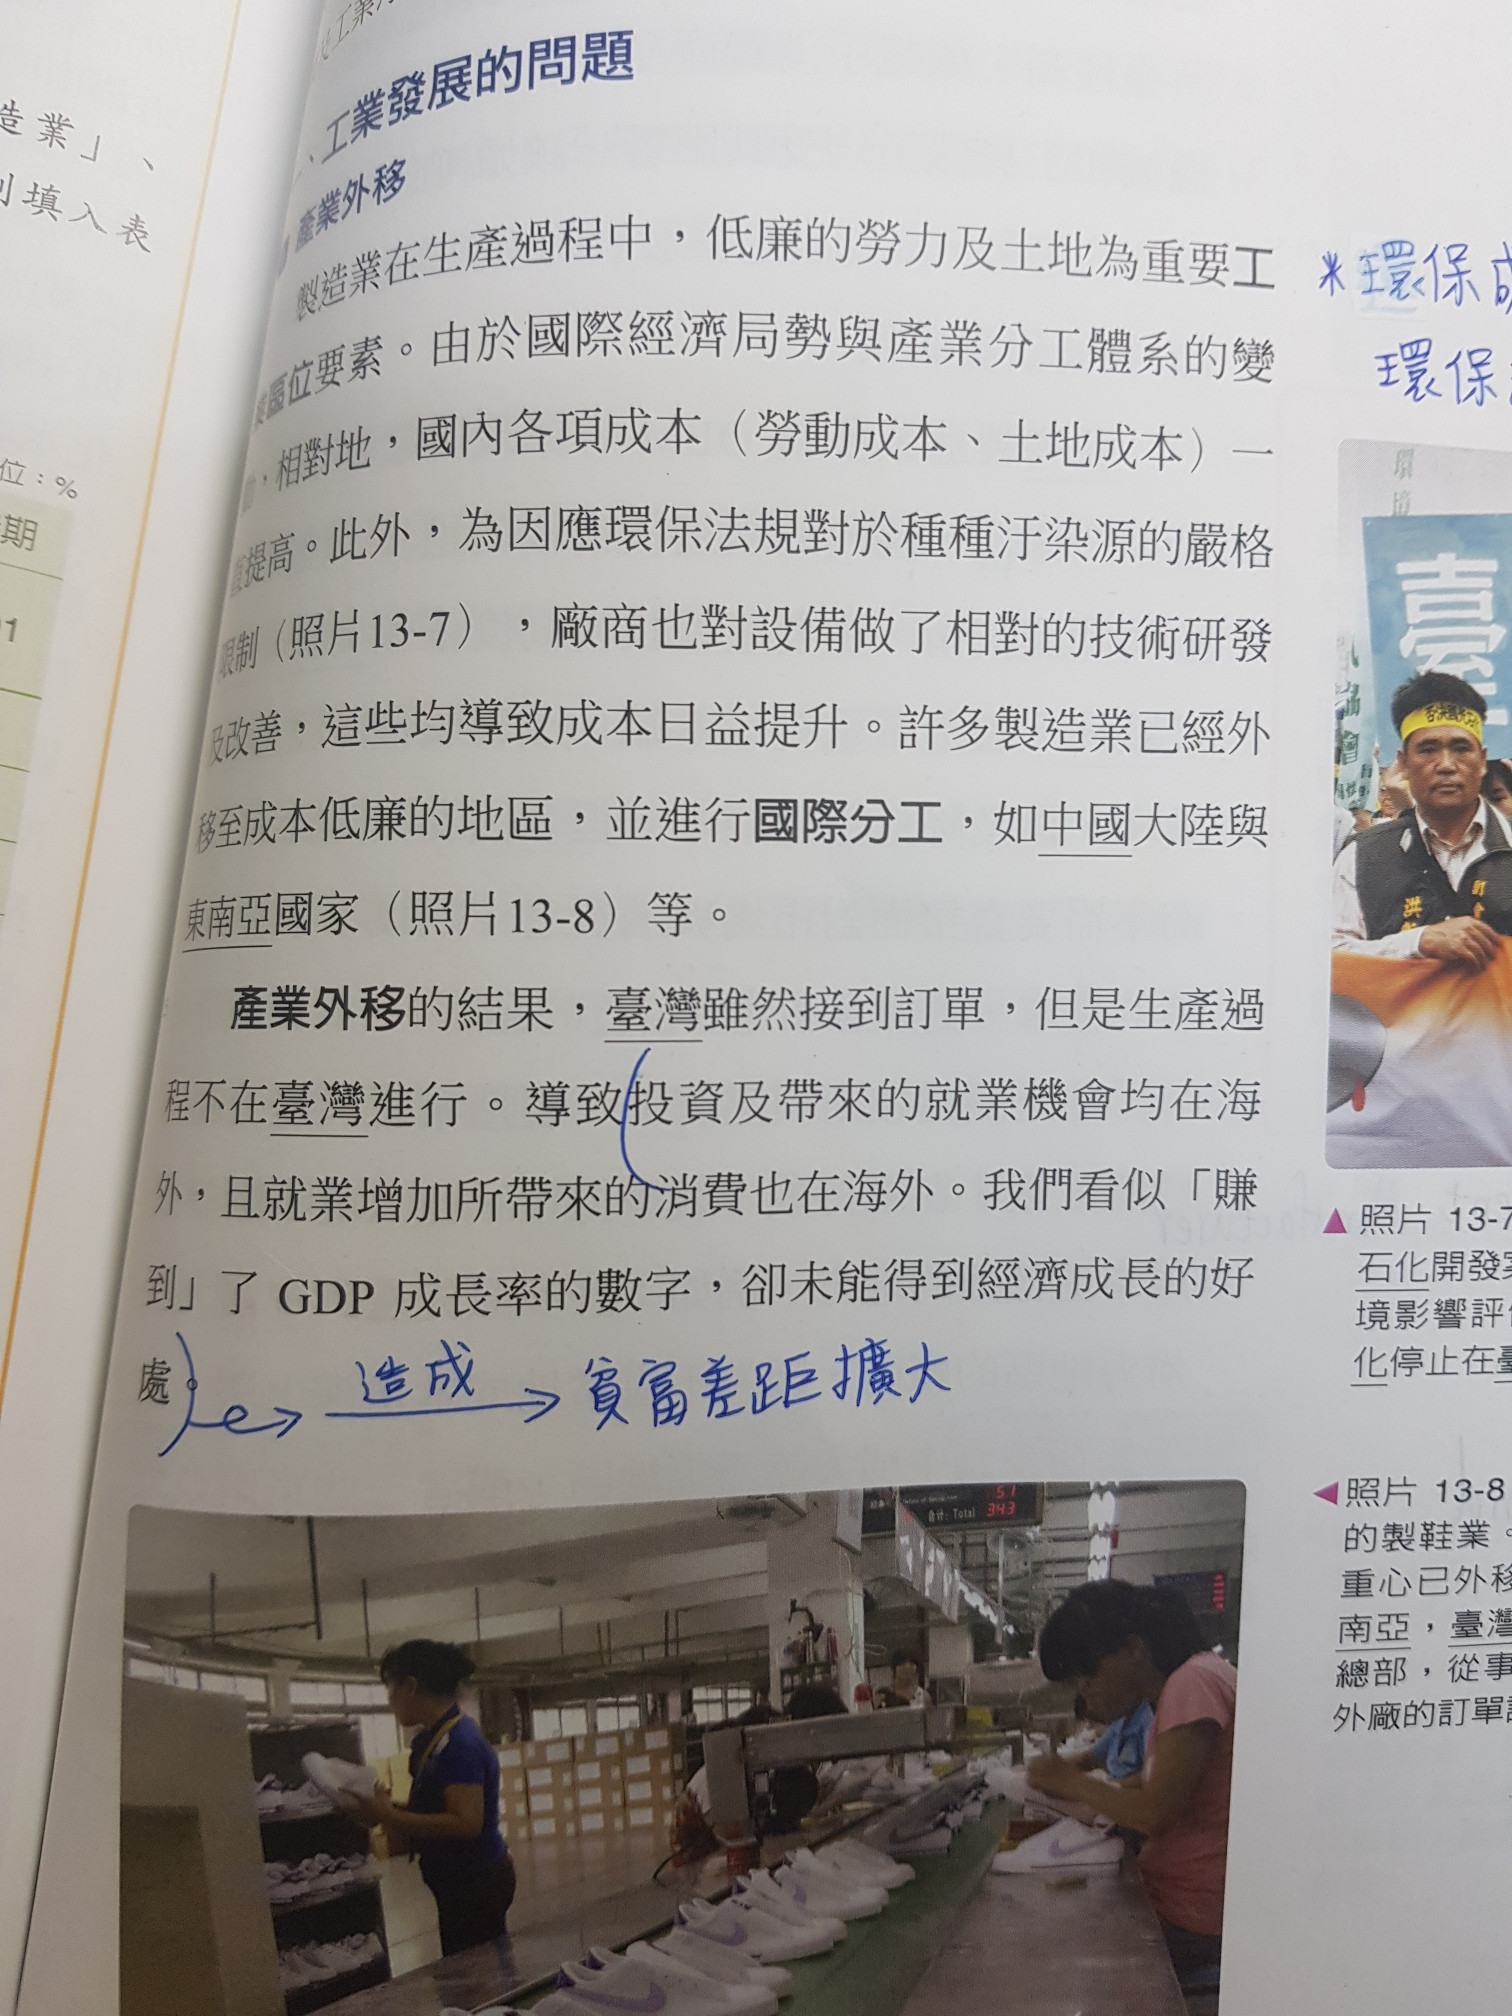 造業」、
填入表
位：%
期
工業發展的問題
產業外移
製造業在生產過程中，低廉的勞力及土地為重要工
業區位要素。由於國際經濟局勢與產業分工體系的變
，相對地，國內各項成本（勞動成本、土地成本）一
直提高。此外，為因應環保法規對於種種汙染源的嚴格
限制（照片13-7），廠商也對設備做了相對的技術研發
及改善，這些均導致成本日益提升。許多製造業已經外
移至成本低廉的地區，並進行國際分工，如中國大陸與
東南亞國家（照片13-8）等。
產業外移的結果，臺灣雖然接到訂單，但是生產過
程不在臺灣進行。導致投資及帶來的就業機會均在海
外，且就業增加所帶來的消費也在海外。我們看似「賺
到」了 GDP 成長率的數字，卻未能得到經濟成長的好
處。
造成
貧富差距擴大
合計: Total 343
51
*環保
環保
環境
臺
協會
▲照片 13-7
石化開發
境影響評
化停止在
◀照片 13-8
的製鞋業。
重心已外移
南亞，臺灣
總部，從事
外廠的訂單